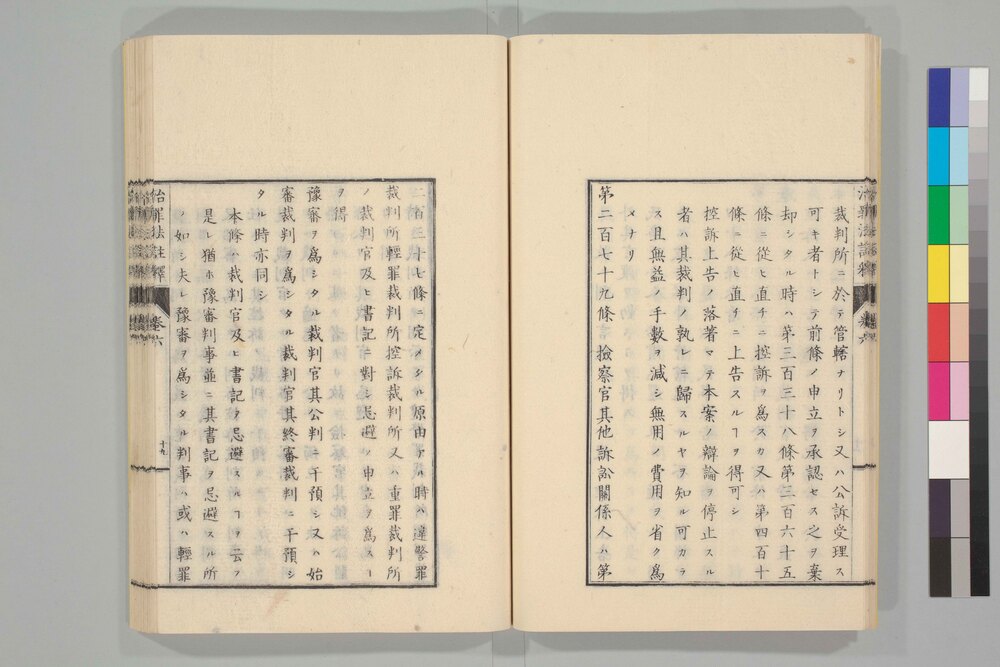 裁判所ニ於テ管轄ナリトシ又ハ公訴受理ス
可キ者トシテ前條ノ申立ヲ承認セス之ヲ棄
却シタル時ハ第三百三十八條第三百六十五
條ニ從ヒ直チニ控訴ヲ爲スカ又ハ第四百十
條ニ從ヒ直チニ上告スルヿヲ得可シ
控訴上告ノ落著マテ本案ノ辯論ヲ停止スル
者ハ其裁判ノ孰レニ歸スルヤヲ知ル可カラ
ス且無益ノ手數ヲ減シ無用ノ費用ヲ省ク爲
メナリ
第二百七十九條 撿察官其他訴訟關係人ハ第
治罪法註釋 卷六
二百三十七條ニ定メタル原由アル時ハ違警罪
裁判所輕罪裁判所控訴裁判所又ハ重罪裁判所
ノ裁判官及ヒ書記ニ對シ忌避ノ申立ヲ爲スヿ
ヲ得
豫審ヲ爲シタル裁判官其公判ニ干預シ又ハ始
審裁判ヲ爲シタル裁判官其終審裁判ニ干預シ
タル時亦同シ
本條ハ裁判官及ヒ書記ヲ忌避スルヿヲ云フ
是レ猶ホ豫審判事並ニ其書記ヲ忌避スル所
ノ如シ夫レ豫審ヲ爲シタル判事ハ或ハ輕罪
治罪法註釋 卷六 十九